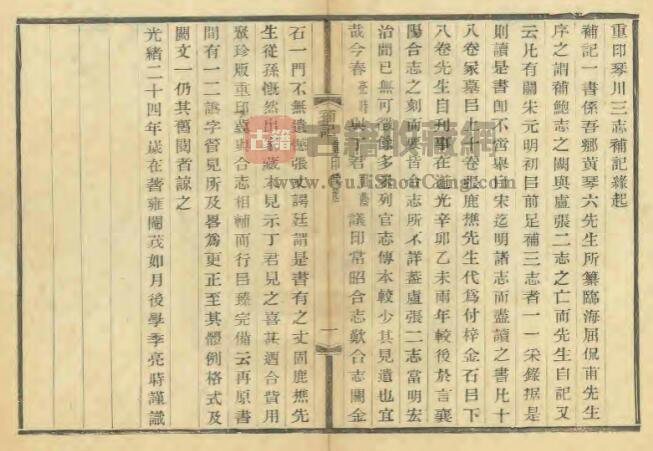 重印琴川三志補記緣起
補記一書係吾鄉黃琴六先生所纂臨海屈侃甫先生
序之謂補鮑志之闕與盧張二志之亡而先生自記又
云凡有關宋元明初目前足補三志者一一采錄據是
則讀是書卽不啻舉自宋迄明諸志而盡讀之書凡十
八卷冢墓目上十卷張鹿樵先生代爲付梓金石目下
八卷先生自刊事在道光辛卯乙未兩年較後於言襄
陽合志之刻而要皆合志所不詳葢盧張二志當明宏
治間已無可徵
官志傳本較少其見遺也宜
哉今春
與丁君
議印常昭合志歎合志闕金
石一門不無遺憾張丈諤廷謂是書有之丈固鹿樵先
生從孫慨然出家藏本見示丁君見之喜甚迺合貲用
聚珍版重印冀與合志相輔而行目臻完備云再原書
間有一二譌字管見所及畧爲更正至其體例格式及
闕文一仍其舊閱者諒之
光緒二十四年歲在著雍閹茂如月後學季亮時謹識
補記
一
古籍收藏網
www.GuJiShouCang.com